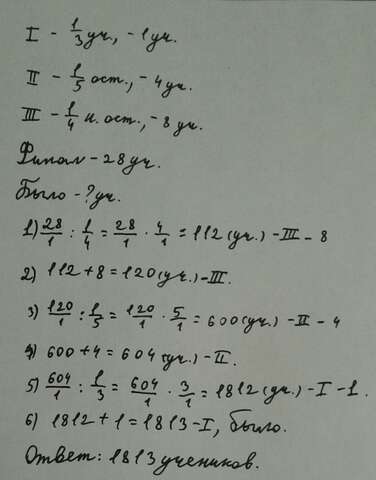 I - 1/3 уч., - 1 уч.
II - 1/5 ост., - 4 уч.
III - 1/4 н. ост., - 8 уч.
Финал - 28 уч.
Было - ? уч.
1) 28/1 : 1/4 = 28/1 · 4/1 = 112 (уч.) - III - 8
2) 112 + 8 = 120 (уч.) - III.
3) 120/1 : 1/5 = 120/1 · 5/1 = 600 (уч.) - II - 4
4) 600 + 4 = 604 (уч.) - II.
5) 604/1 : 1/3 = 604/1 · 3/1 = 1812 (уч.) - I - 1.
6) 1812 + 1 = 1813 - I, было.
Ответ: 1813 учеников.